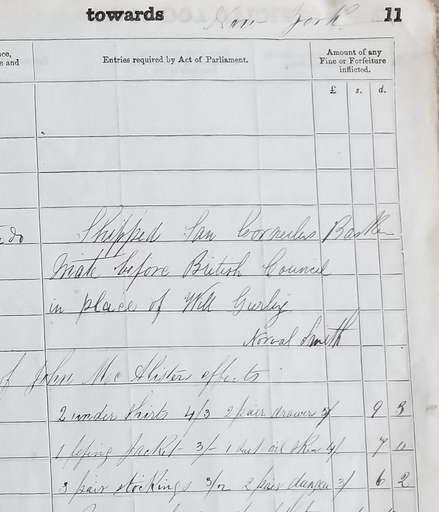 towards New York 11
Entries required by Act of Parliament.
Amount of any
Fine or Forfeiture
inflicted.
£ s. d.
do Shipped Jan Cornelis
Mate before British Council
in place of Will
Norval Smith
of John Mc Alister effects
2 under shirts 4/3 2 pair drawers 3/ 9 3
1 Jacket 3/- 1 suit oil skin 4/ 7
3 pair stockings 3/2 2 pair 3/ 6 2